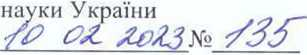 науки України
10 02 2023 № 135